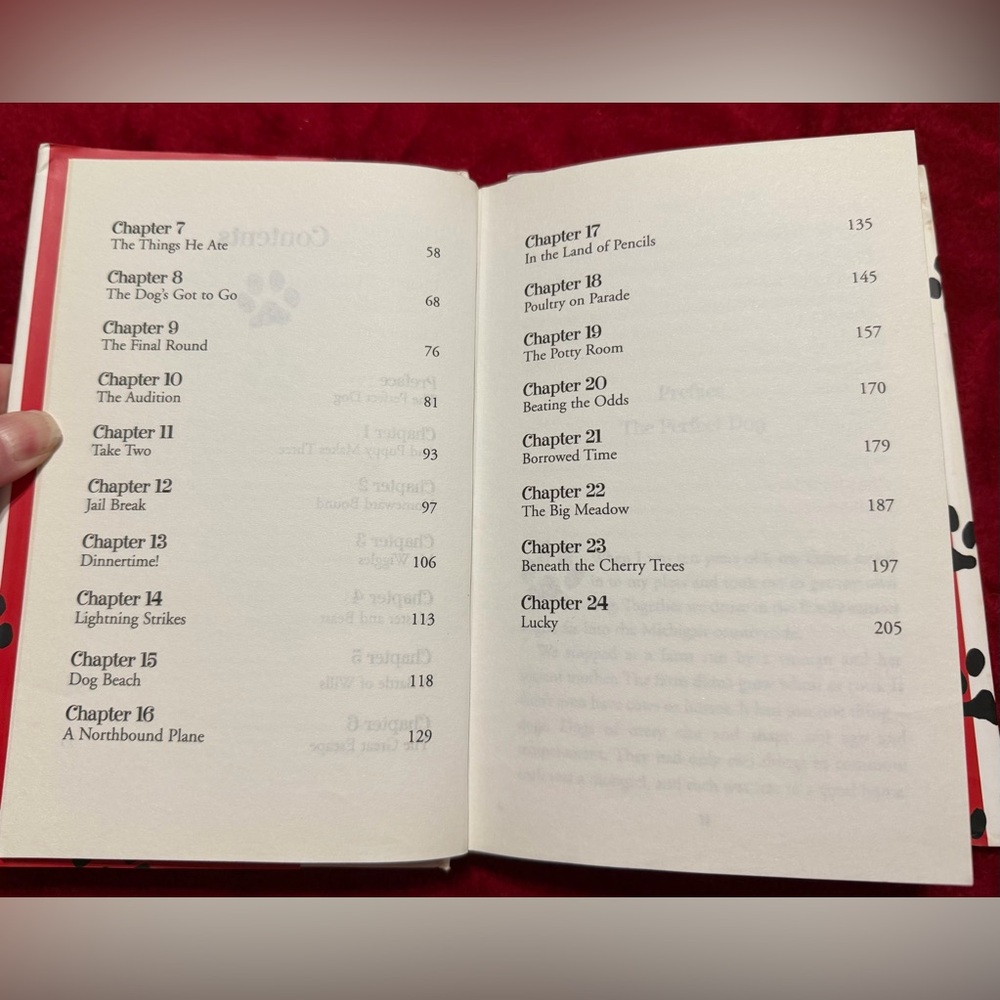 Chapter 7
The Things He Ate 58
Chapter 8
The Dog's Got to Go 68
Chapter 9
The Final Round 76
Chapter 10
The Audition 81
Chapter 11
Take Two 93
Chapter 12
Jail Break 97
Chapter 13
Dinnertime! 106
Chapter 14
Lightning Strikes 113
Chapter 15
Dog Beach 118
Chapter 16
A Northbound Plane 129
Chapter 17 135
In the Land of Pencils
Chapter 18 145
Poultry on Parade
Chapter 19 157
The Potty Room
Chapter 20 170
Beating the Odds
Chapter 21 179
Borrowed Time
Chapter 22 187
The Big Meadow
Chapter 23
Beneath the Cherry Trees 197
Chapter 24
Lucky 205
Contents
Preface
Chapter 1
Chapter 2
Chapter 3
Chapter 4
Chapter 5
Chapter 6
The Great Escape
Preface
The Perfect Dog